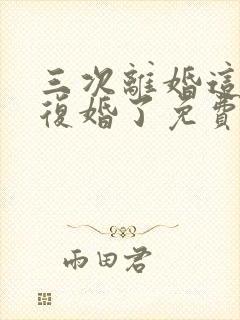 三次離婚這
復婚了免費
雨田君